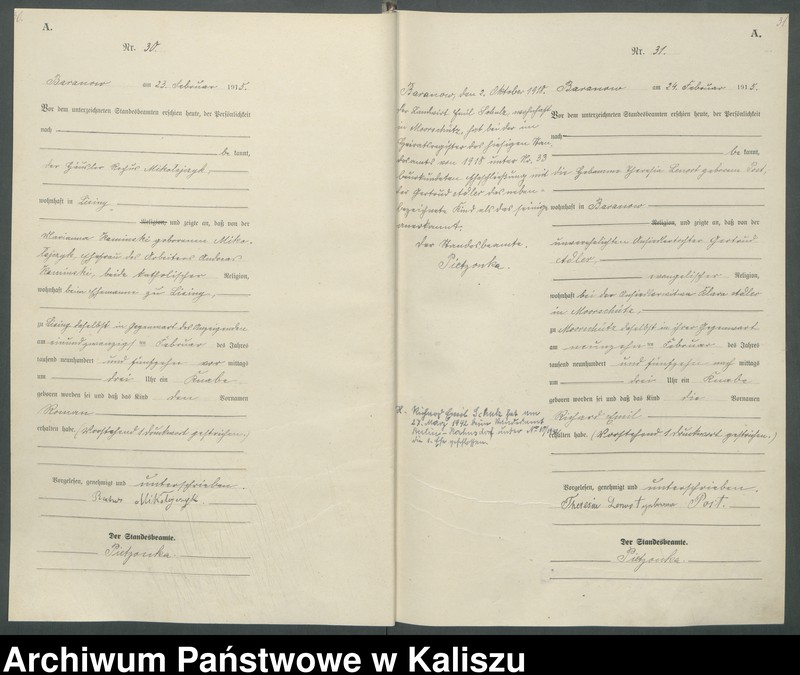 A.
Nr. 30.
Baranow am 23. Februar 1915.
Vor dem unterzeichneten Standesbeamten erschien heute, der Persönlichkeit
nach
be kannt,
der Häusler
wohnhaft in Lising
Religion, und zeigte an, daß von der
Marianna Kaminski geborenen Miko-
lajayk, Ehefrau des Arbeiters Andreas
Kaminski, beide katholischer Religion,
wohnhaft beim Ehemanne zu Lising,
zu Lising daselbst in Gegenwart des Anzeigenden
am einundzwanzigsten Februar des Jahres
tausend neunhundert und fünfzehn vor mittags
um drei Uhr ein Knabe
geboren worden sei und daß das Kind den Vornamen
Roman
erhalten habe. (Vorstehend 1 Druckwort gestrichen.)
Vorgelesen, genehmigt und unterschrieben.
Der Standesbeamte.
Pietzonka
31
A.
Nr. 31.
Baranow am 24. Februar 1915.
Vor dem unterzeichneten Standesbeamten erschien heute, der Persönlichkeit
nach
be kannt,
die Hebamme Theresia geborene Post,
wohnhaft in Baranow
Religion, und zeigte an, daß von der
unverehelichten Ansiedlertochter Gertrud
Adler,
evangelischer Religion,
wohnhaft bei der Ansiedlerwitwe Klara Adler
in Moorschütz,
zu Moorschütz daselbst in ihrer Gegenwart
am neunzehnten Februar des Jahres
tausend neunhundert und fünfzehn nach mittags
um drei Uhr ein Knabe
geboren worden sei und daß das Kind die Vornamen
Richard Emil
erhalten habe. (Vorstehend 1 Druckwort gestrichen.)
Vorgelesen, genehmigt und unterschrieben.
Theresia geborene Post.
Der Standesbeamte.
Pietzonka
Baranow, den 2. Oktober 1918.
Der Landwirt Emil Schulz, wohnhaft
in Moorschütz, hat bei der im
Heiratsregister des hiesigen Stan-
desamts von 1918 unter No. 33
beurkundeten Eheschließung mit
der Gertrud Adler das neben-
bezeichnete Kind als das seinige
anerkannt.
Der Standesbeamte.
Pietzonka.
Richard Emil Schulz hat am
März 1942 beim Standesamt
Berlin- unter Nr.
die 1. Ehe geschlossen.
Archiwum Państwowe w Kaliszu